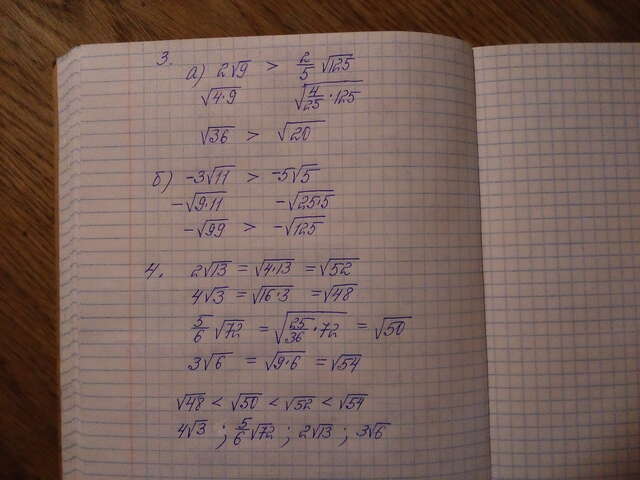 3.
а) 2√9 > 2/5 √125
√4·9 √4/25·125
√36 > √20
б) -3√11 > -5√5
-√9·11 -√25·5
-√99 > -√125
4. 2√13 = √4·13 = √52
4√3 = √16·3 = √48
5/6 √72 = √25/36·72 = √50
3√6 = √9·6 = √54
√48 < √50 < √52 < √54
4√3 ; 5/6 √72 ; 2√13 ; 3√6